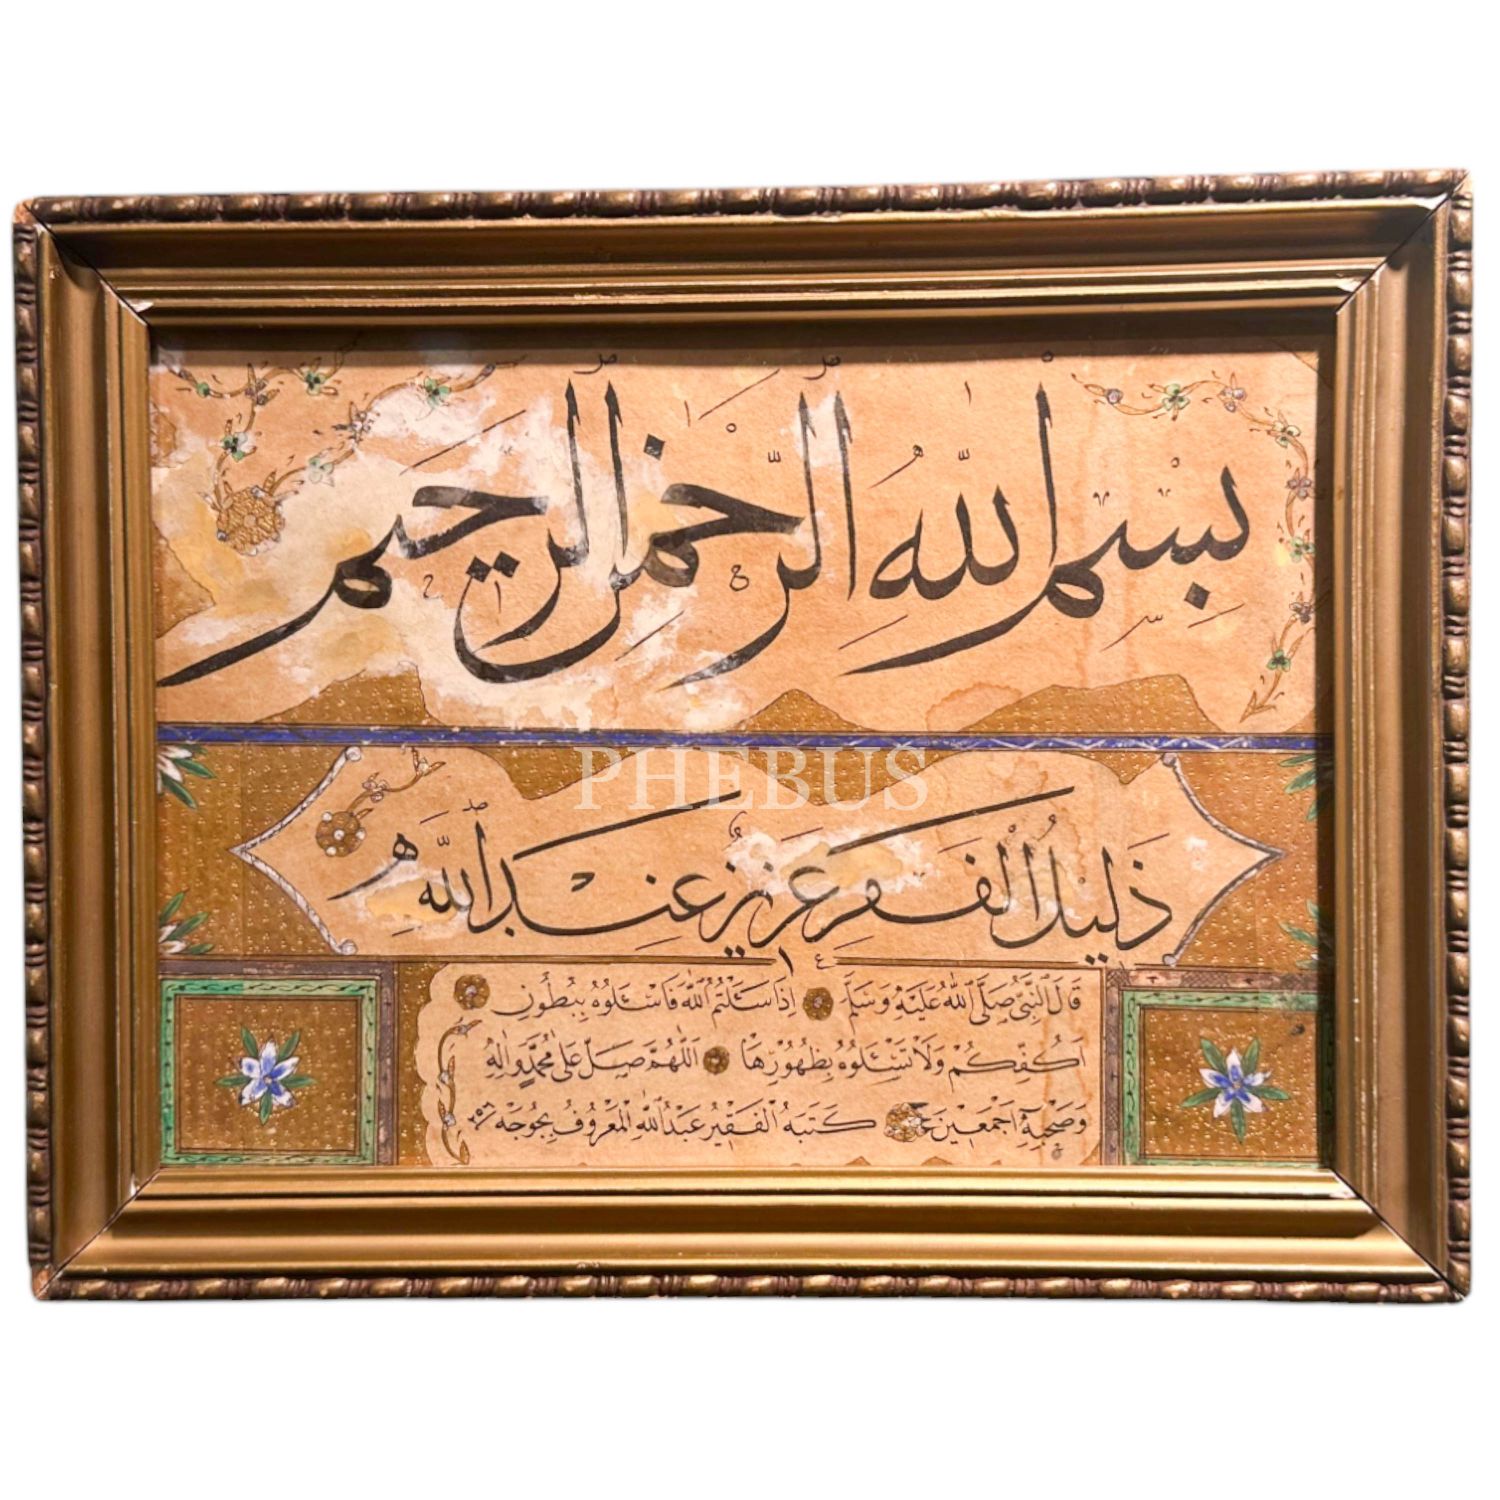 بسم الله الرحمن الرحيم
PHEBUS
ذَلِيلُ الْفَقْرِ عَزِيزٌ عِنْدَ اللّٰه
قَالَ النَّبِيُّ صَلَّى اللّٰهُ عَلَيْهِ وَسَلَّمَ اِذَا سَئَلْتُمُ اللّٰهَ فَاسْئَلُوهُ بِبُطُونِ
اَكُفِّكُمْ وَلَا تَسْئَلُوهُ بِظُهُورِهَا اَللّٰهُمَّ صَلِّ عَلَى مُحَمَّدٍ وَاٰلِهِ
وَصَحْبِهِ اَجْمَعِينَ كَتَبَهُ الْفَقِيرُ عَبْدُ اللّٰهِ الْمَعْرُوفُ بِجُوجَهْ